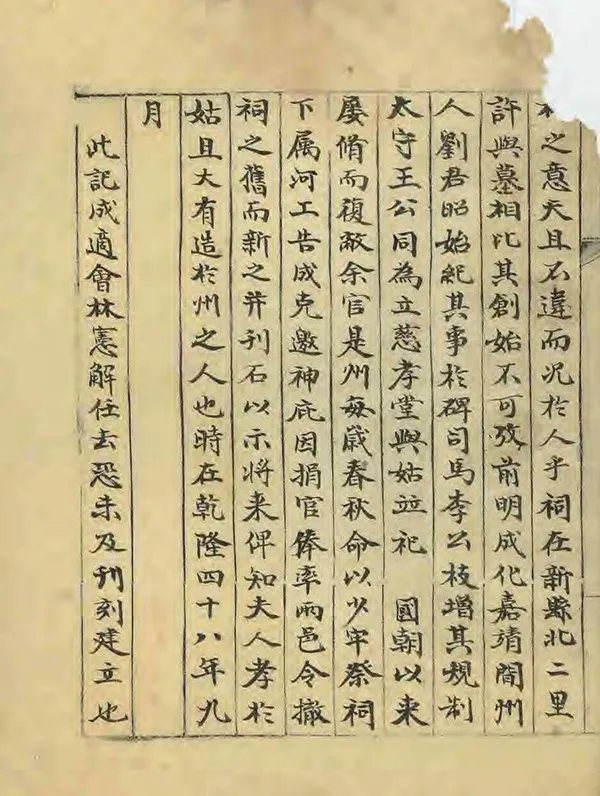 之意天且不違而况於人乎祠在新縣北二里
許與墓相比其創始不可攷前明成化嘉靖間州
人劉君昭始紀其事於碑司馬李公枝增其規制
太守王公同為立慈孝堂與姑並祀 國朝以來
屡脩而復敝余官是州每歲春秋命以少牢祭祠
下属河工告成克邀神庇因捐官俸率兩邑令撤
祠之舊而新之并刊石以示將来俾知夫人孝於
姑且大有造於州之人也時在乾隆四十八年九
月
此記成適會林憲解任去恐未及刊刻建立也